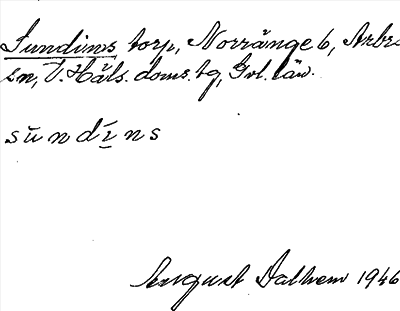 Sundins torp, Norränge 6, Arbrå
sn, V. Häls. doms. tg, Gvl. län.
sŭndīns
August Dalhem 1946